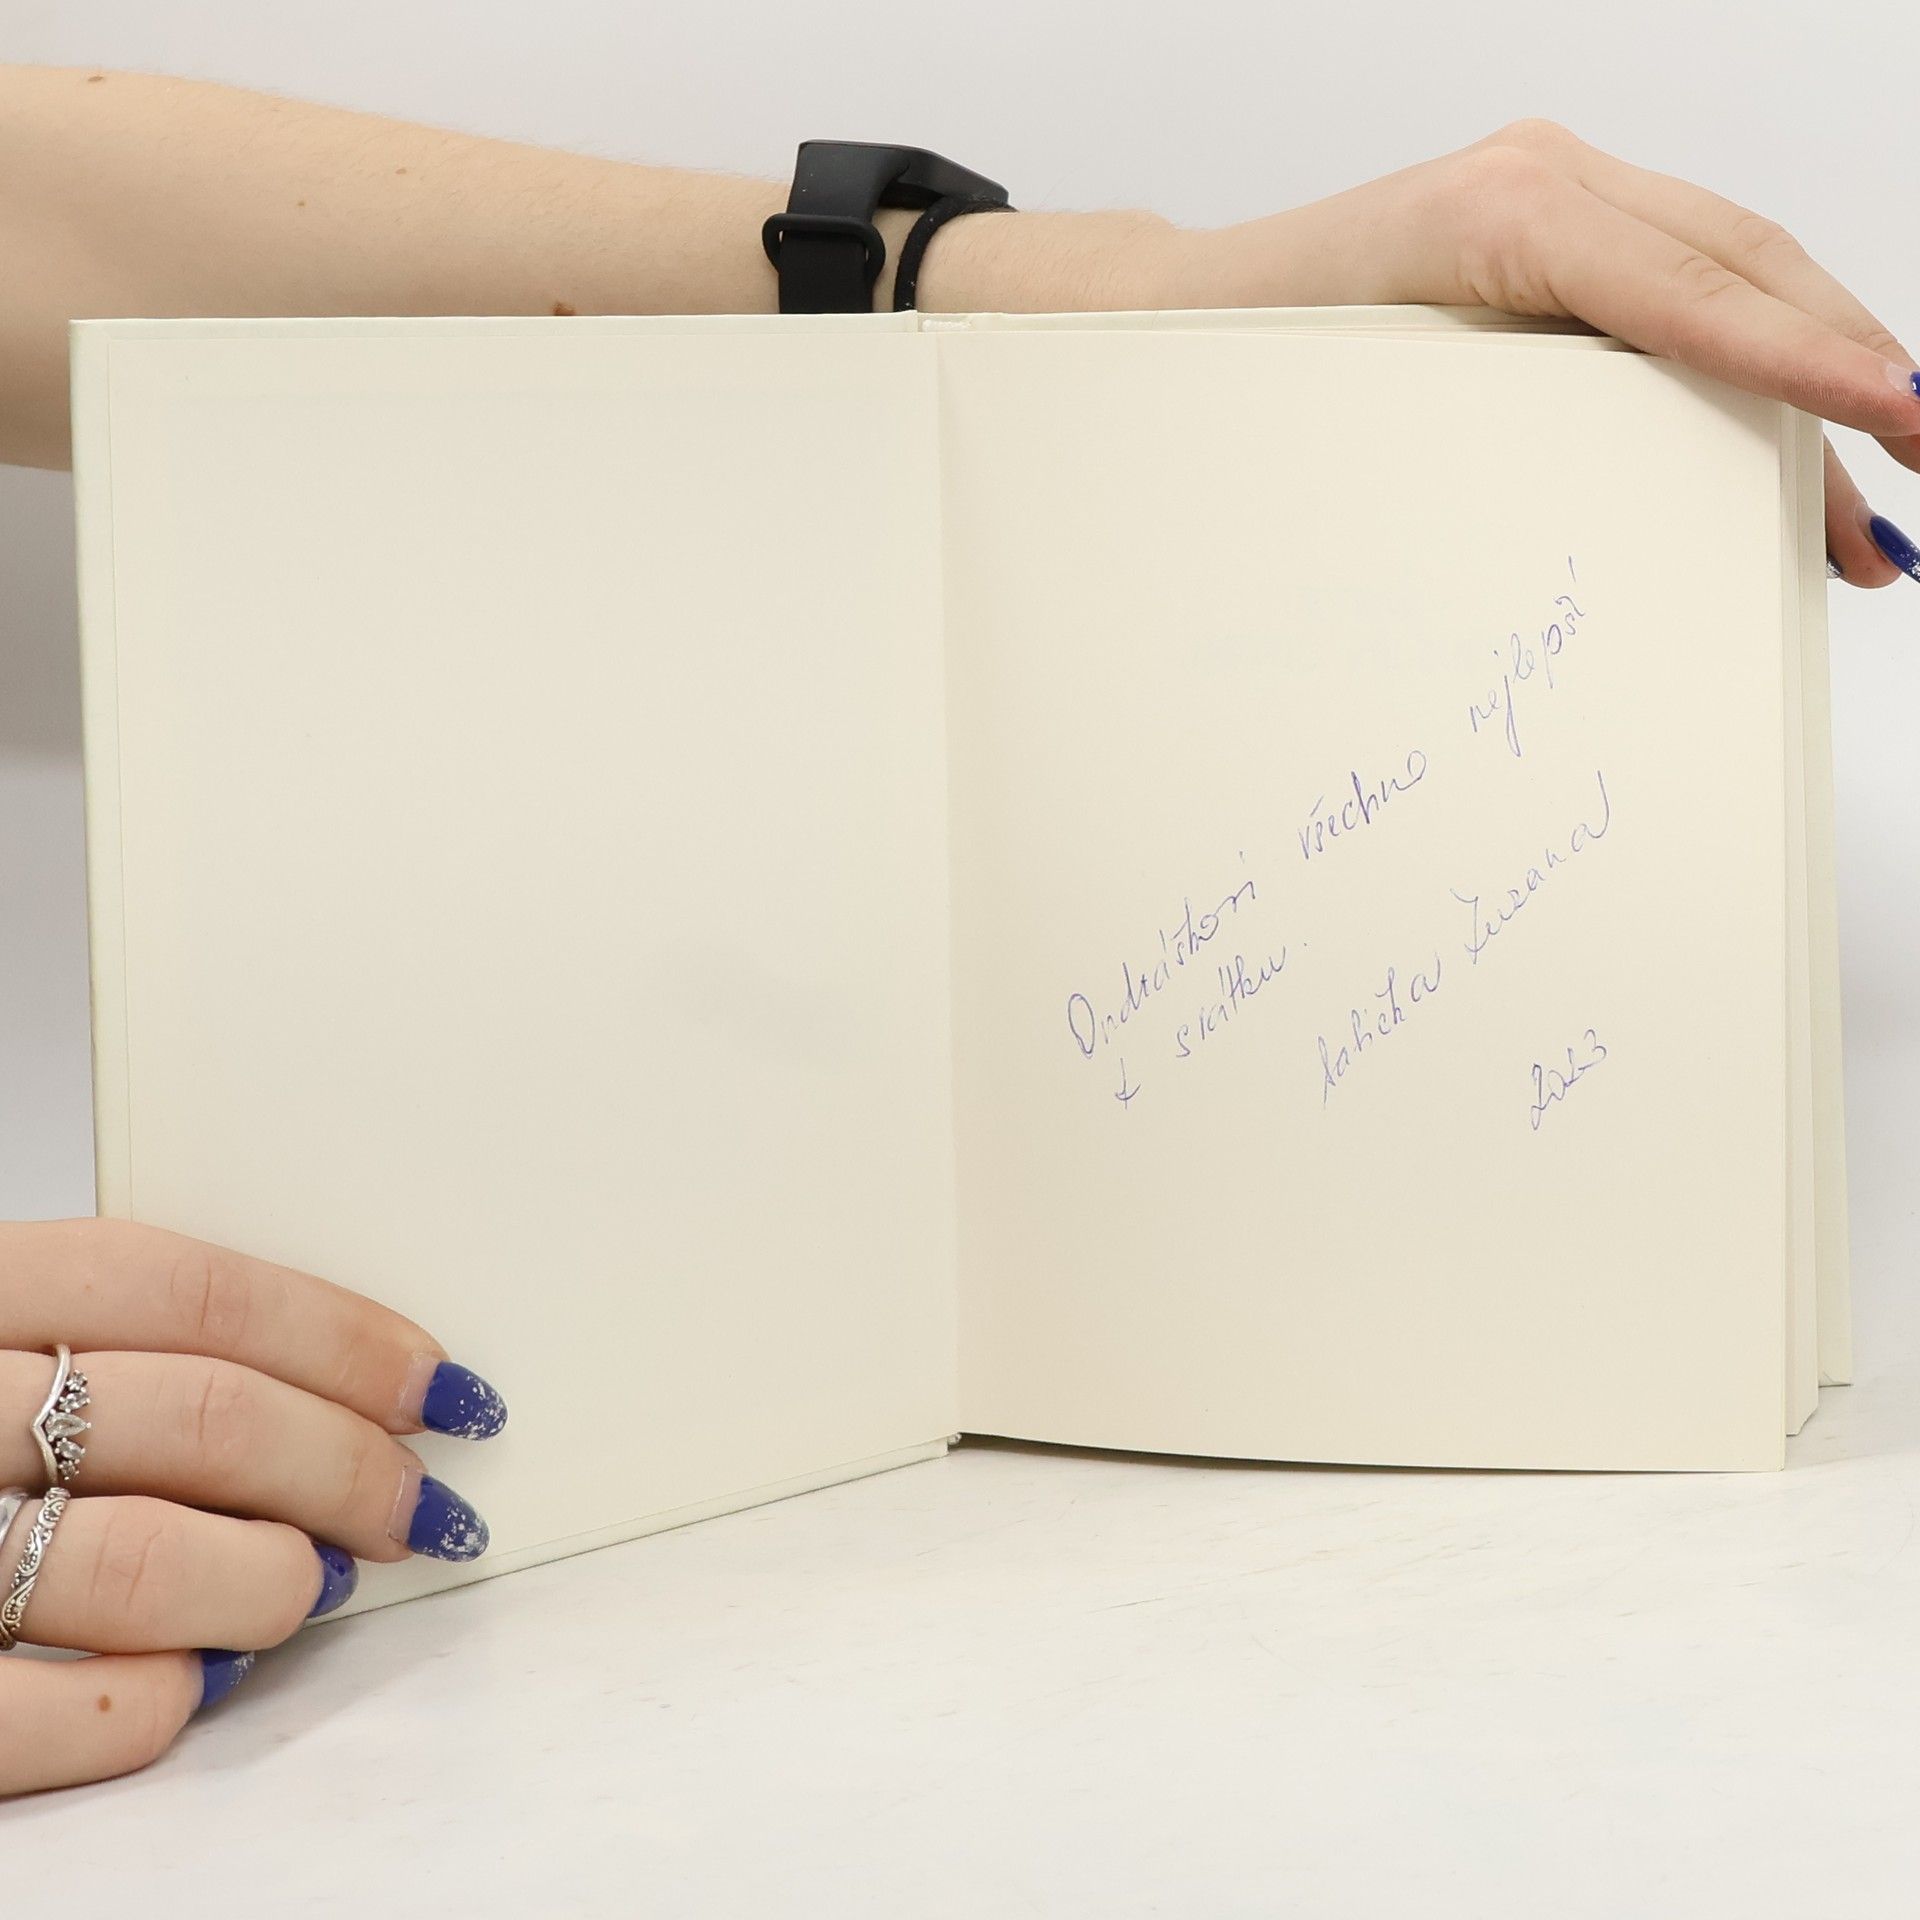 Ondráškovi všechno nejlepší
k svátku.
babička Zuzana
2023